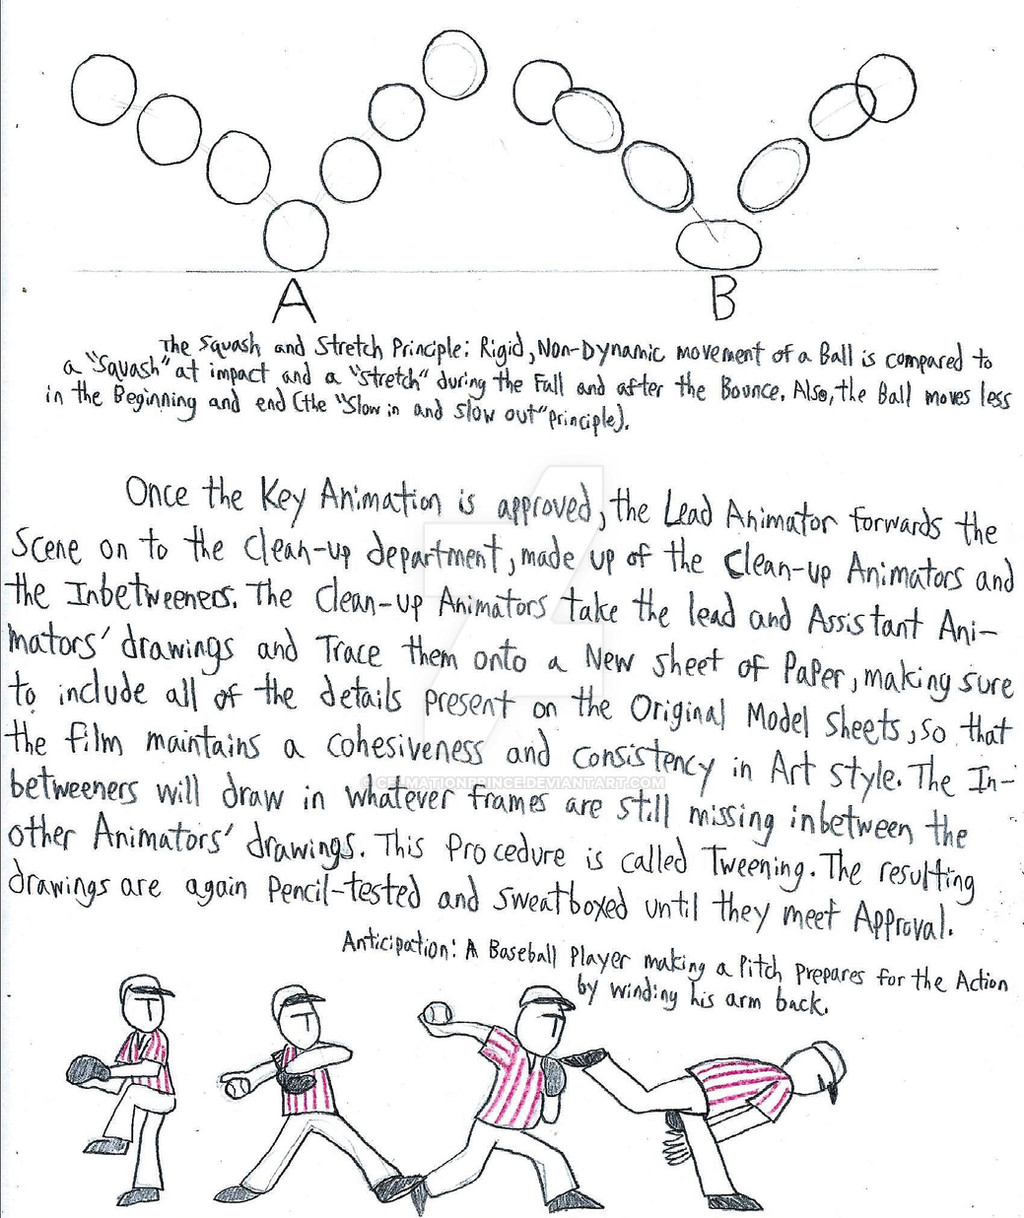 A
B
The Squash and Stretch Principle: Rigid, Non-Dynamic movement of a Ball is compared to
a "Squash" at impact and a "stretch" during the Fall and after the Bounce. Also, the Ball moves less
in the Beginning and end (the "Slow in and slow out" principle).
Once the Key Animation is approved, the Lead Animator forwards the
Scene on to the Clean-up department, made up of the Clean-up Animators and
the Inbetweeners. The Clean-up Animators take the lead and Assistant Ani-
mators' drawings and Trace them onto a New sheet of Paper, making sure
to include all of the details present on the Original Model Sheets, so that
the film maintains a cohesiveness and consistency in Art style. The In-
CELMATIONPRINCE.DEVIANTART.COM
betweeners will draw in whatever frames are still missing inbetween the
other Animators' drawings. This Procedure is called Tweening. The resulting
drawings are again Pencil-tested and sweatboxed until they meet Approval.
Anticipation: A Baseball Player making a Pitch prepares for the Action
by winding his arm back.